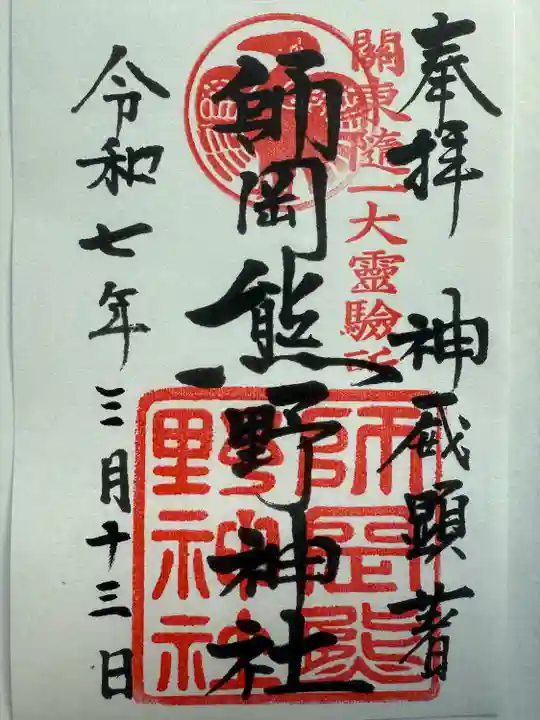 奉拜 神威顕著
關東隨一大靈驗所
師岡熊野神社
師岡熊
野神社
令和七年三月十三日